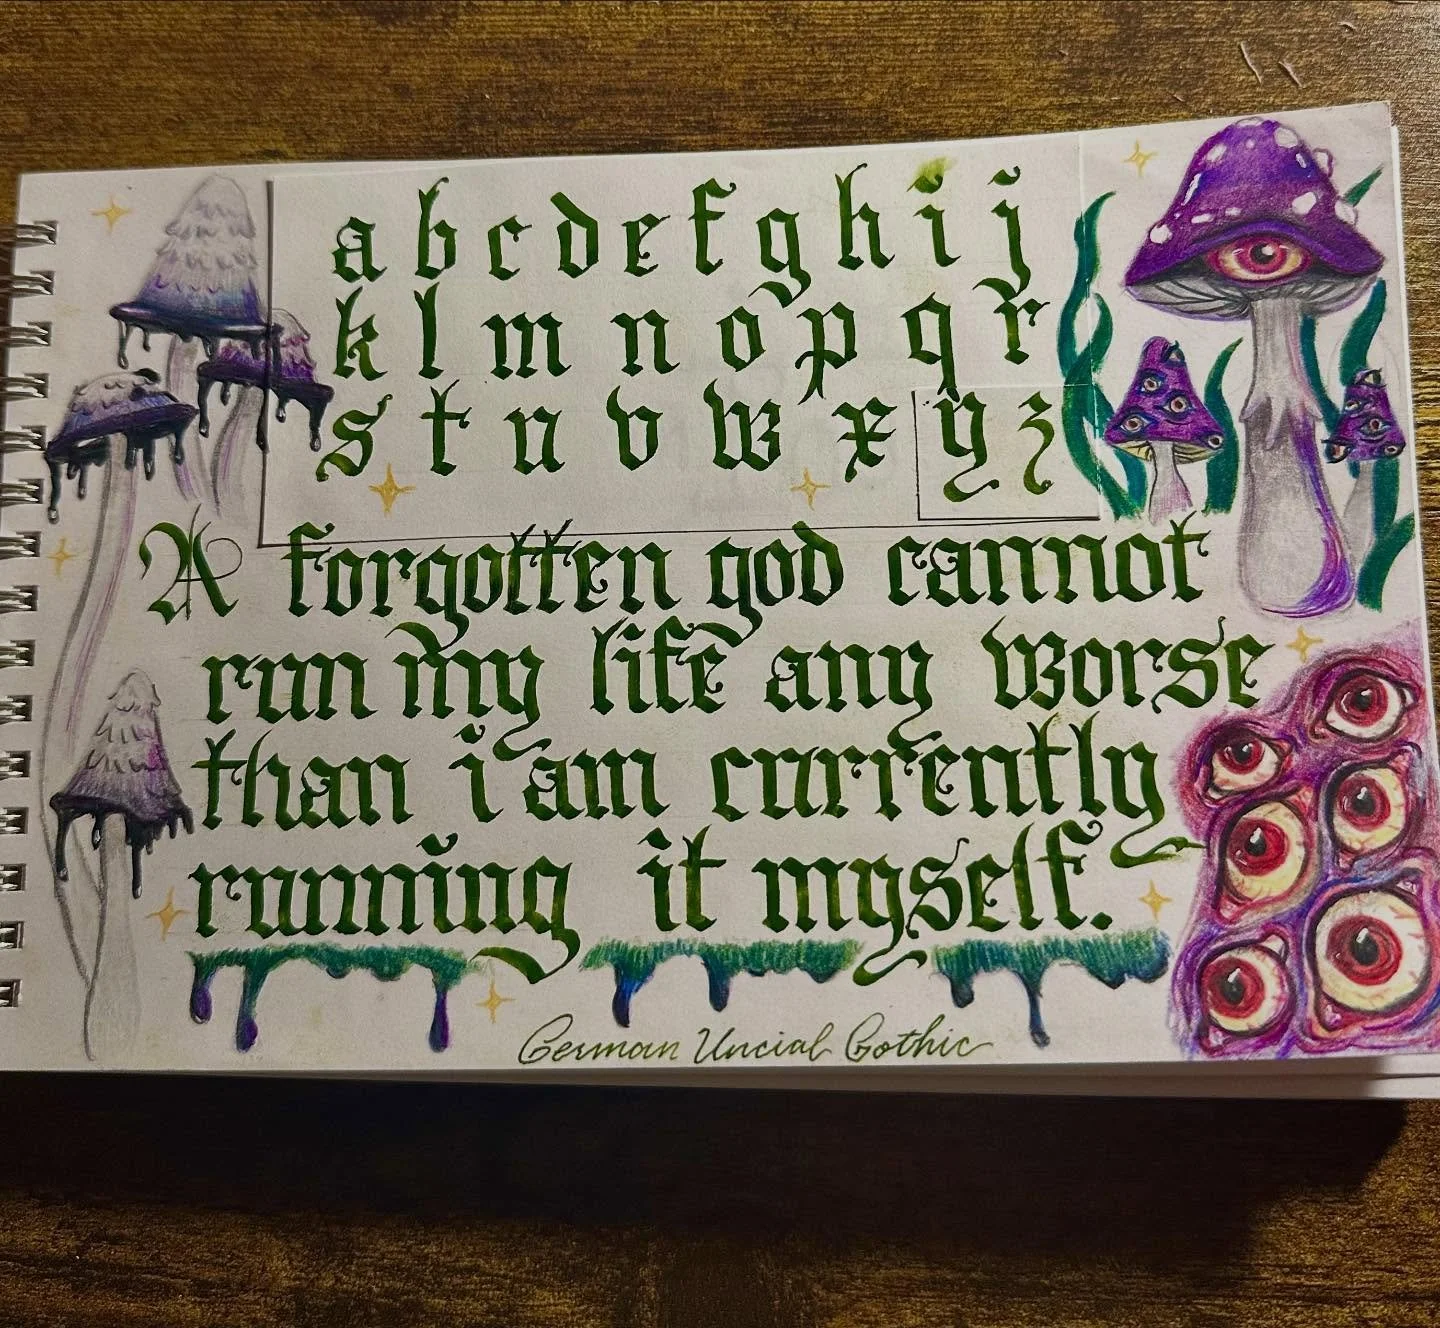 a b c d e f g h i j
k l m n o p q r
s t u v w x y z
A forgotten god cannot
run my life any worse
than i am currently
running it myself.
German Uncial Gothic